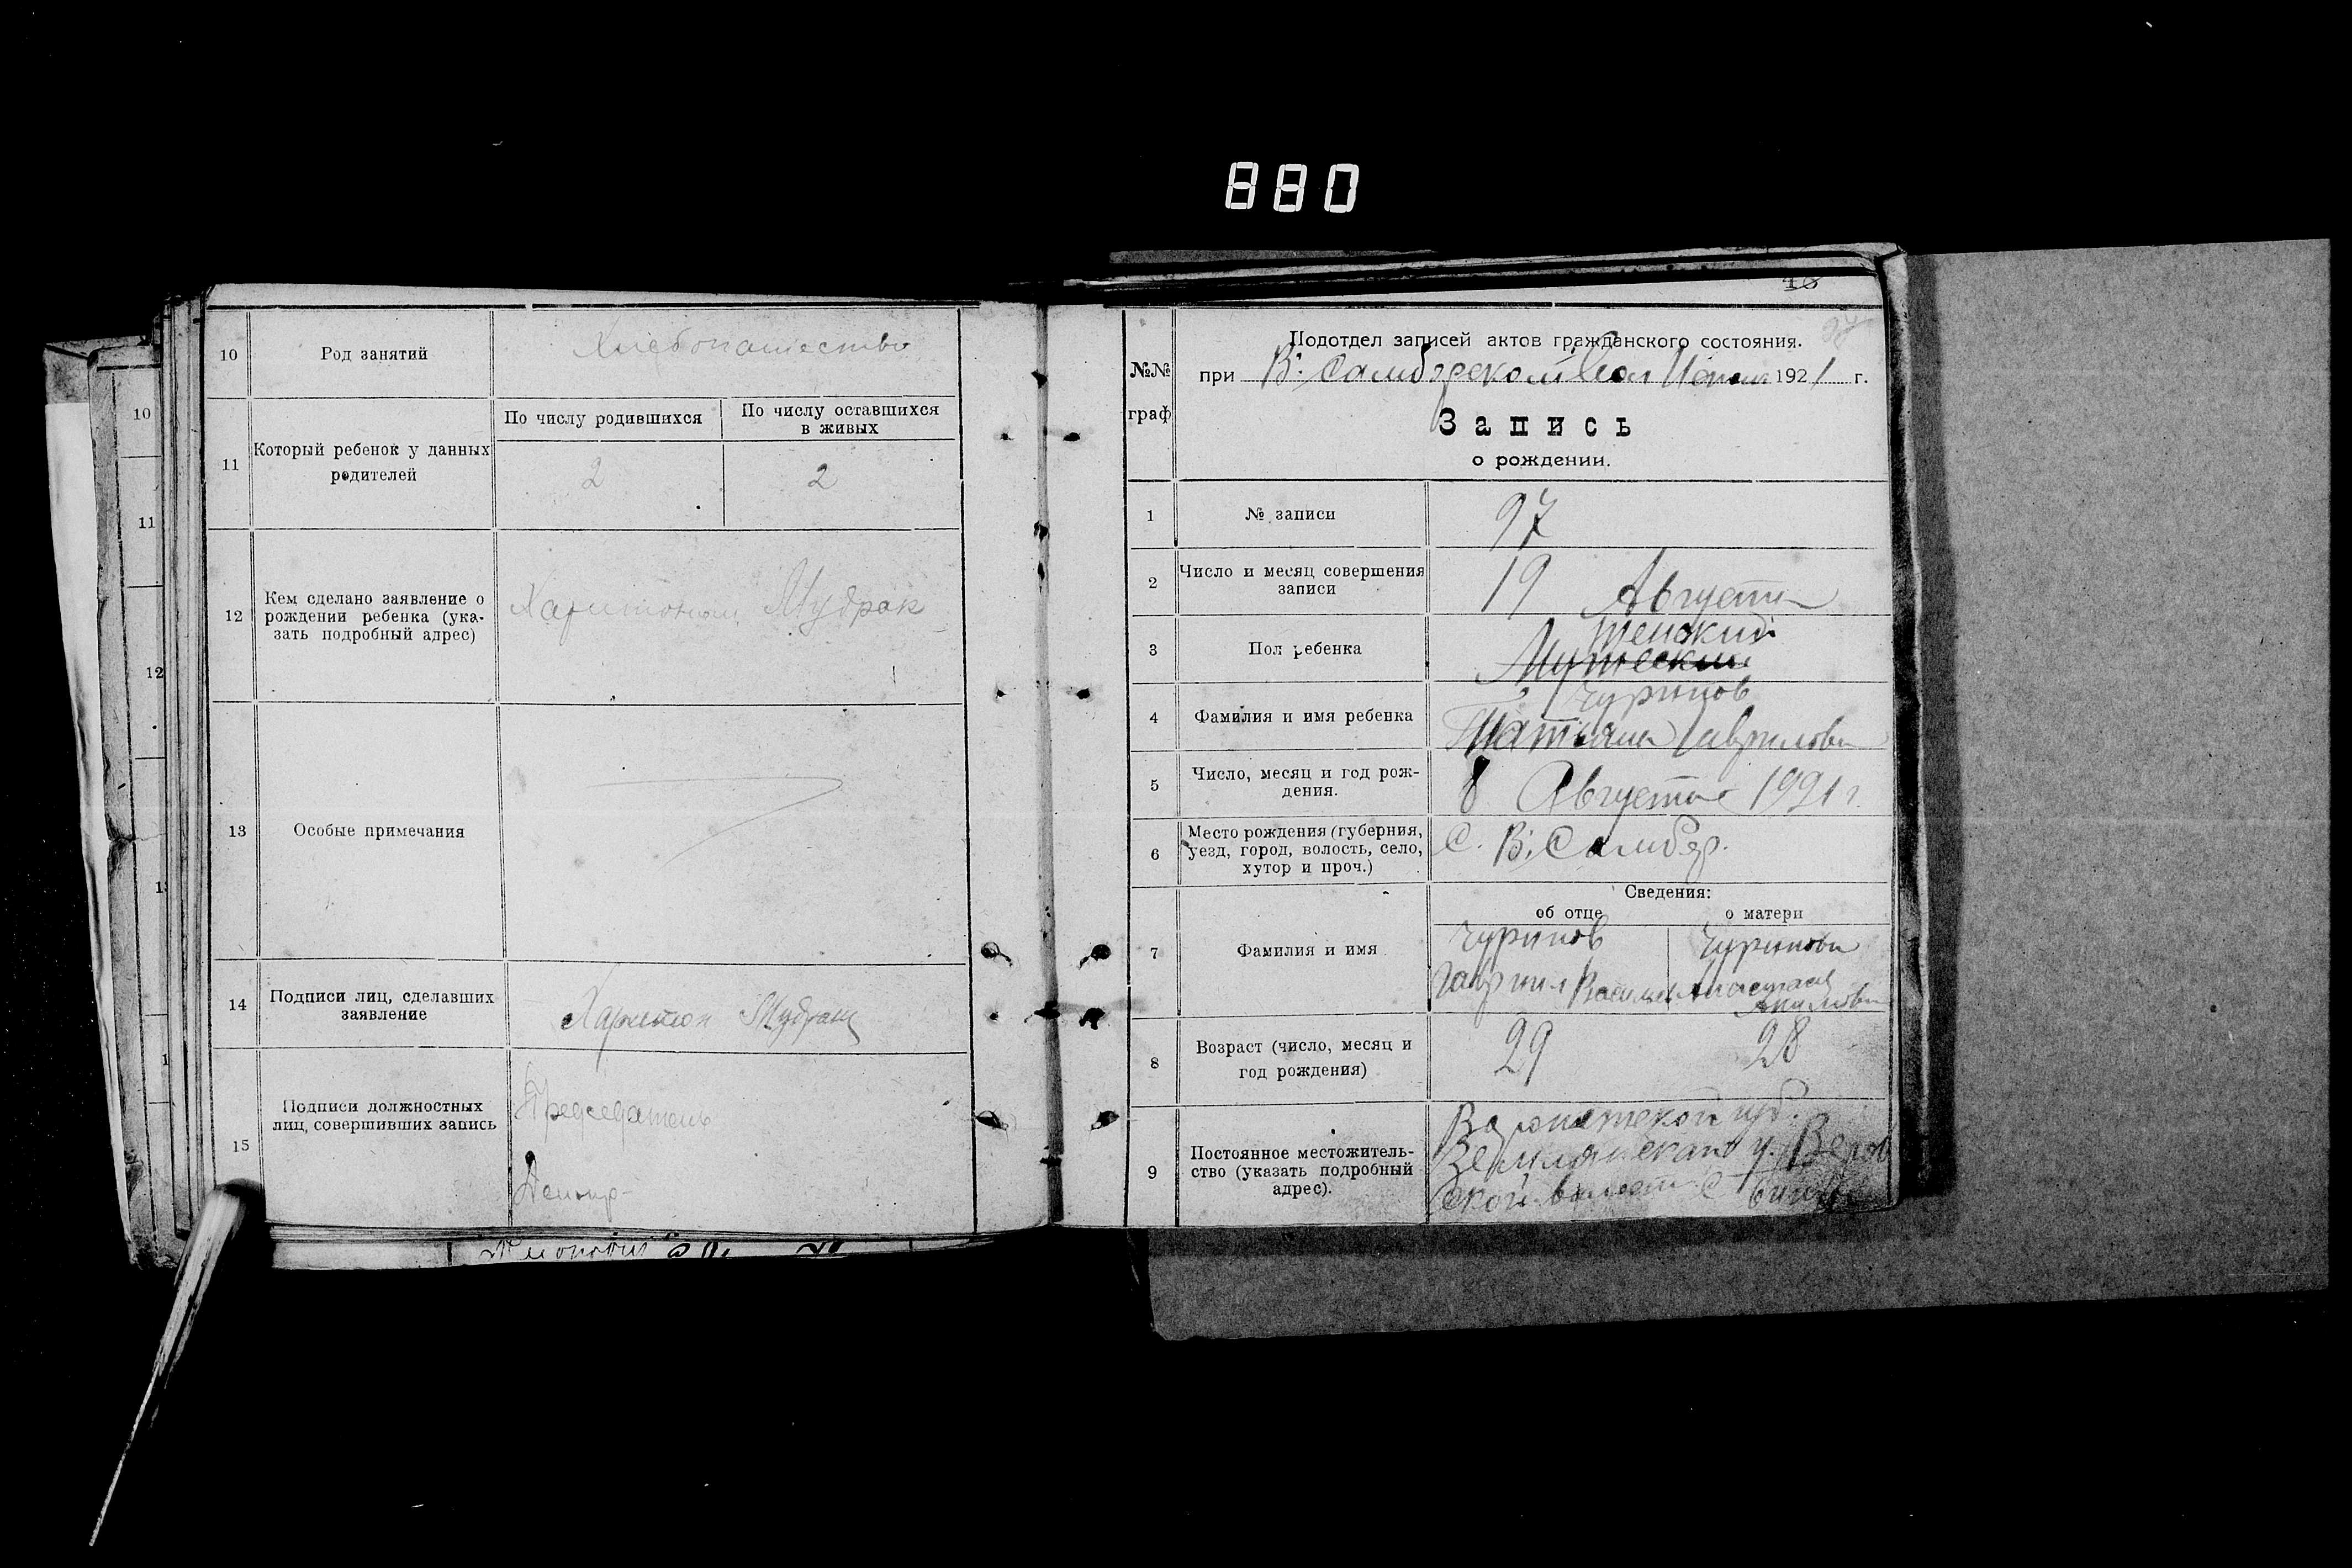 880
10
Род занятий
Хлебопашество
11
Который ребенок у данных
родителей
По числу родившихся
По числу оставшихся
в живых
2
2
12
Кем сделано заявление о
рождении ребенка (ука-
зать подробный адрес)
Харитоном Мудрак
13
Особые примечания
14
Подписи лиц, сделавших
заявление
Харитон
15
Подписи должностных
лиц, совершивших запись
Председатель
10
11
12
№№
граф
Подотдел записей актов гражданского состояния.
при В: 1921 г.
Запись
о рождении.
1
№ записи
97
2
Число и месяц совершения
записи
19 Августа
3
Пол ребенка
Женский
Мужеский
4
Фамилия и имя ребенка
Чурипов
Татьяна Гаврилова
5
Число, месяц и год рож-
дения.
8 Августа 1921 г.
6
Место рождения (губерния,
уезд, город, волость, село,
хутор и проч.)
С. В. Самбер.
Сведения:
об отце
о матери
7
Фамилия и имя
Чурипов
Гаврил
Чурипова
Анастасия
8
Возраст (число, месяц и
год рождения)
29
28
9
Постоянное местожитель-
ство (указать подробный
адрес).
Варонежской губ.
Землянскаго у.
ской волости С